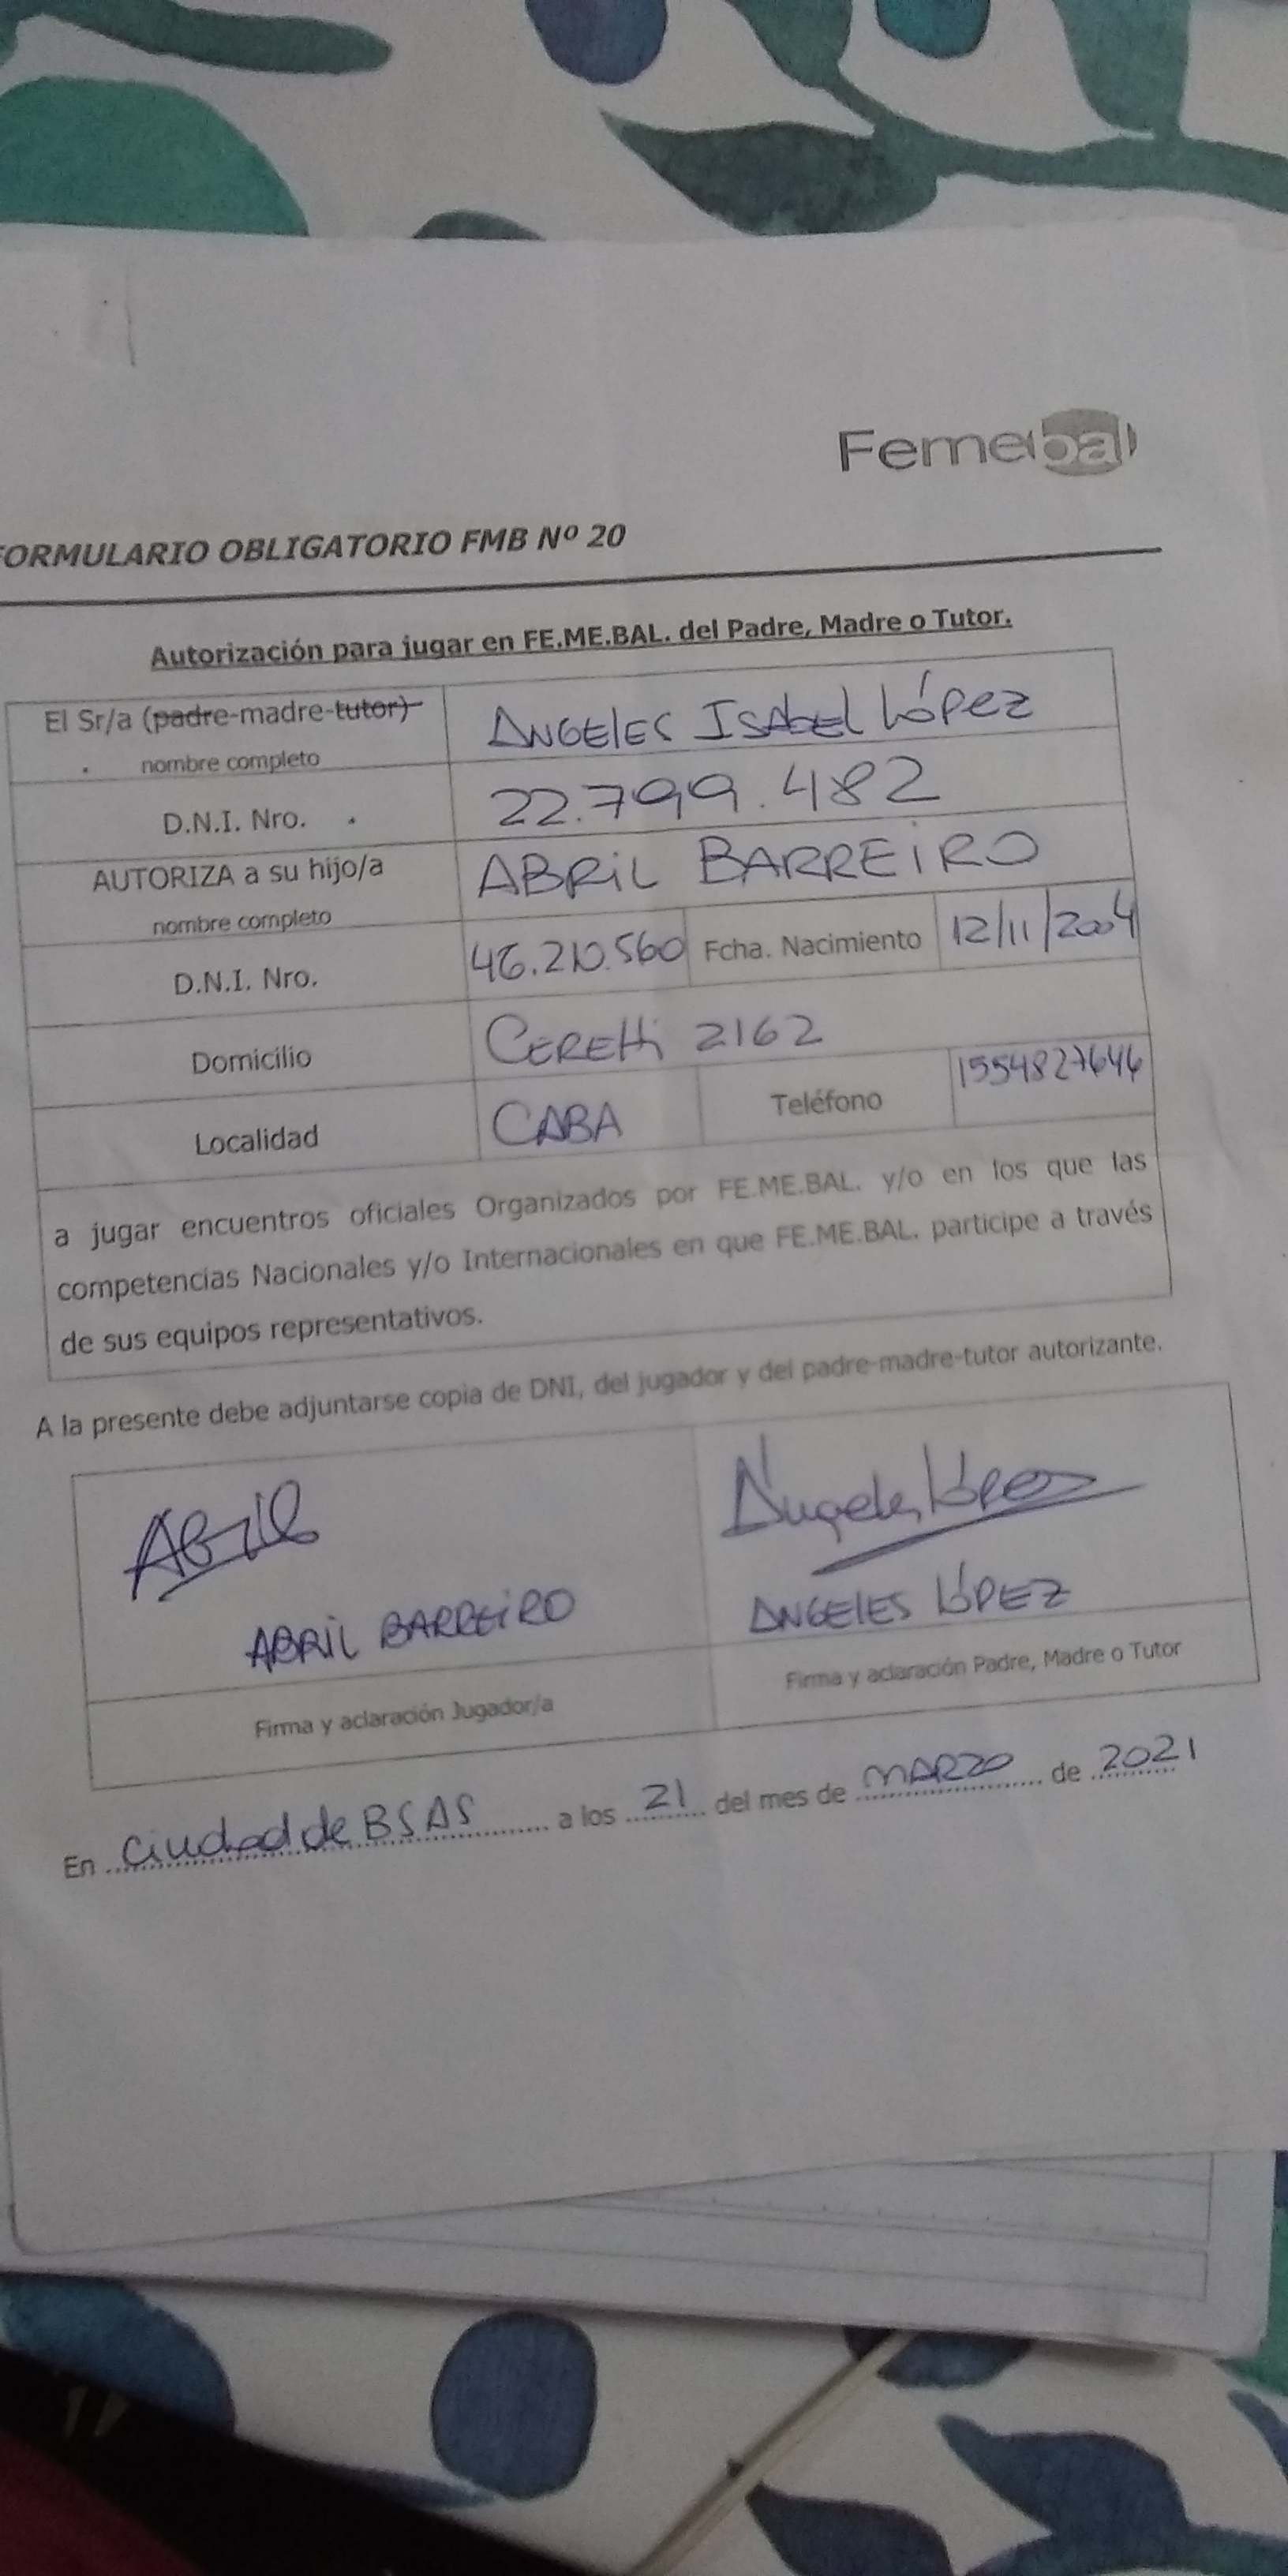 Femebal
FORMULARIO OBLIGATORIO FMB Nº 20
Autorización para jugar en FE.ME.BAL. del Padre, Madre o Tutor.
El Sr/a (padre-madre-tutor) ANGELES ISABEL LÓPEZ
nombre completo
D.N.I. Nro. 22.799.482
AUTORIZA a su hijo/a ABRIL BARREIRO
nombre completo
D.N.I. Nro. 46.210.560 Fcha. Nacimiento 12/11/2004
Domicilio CERETTI 2162
Localidad CABA Teléfono 1554827646
a jugar encuentros oficiales Organizados por FE.ME.BAL. y/o en los que las
competencias Nacionales y/o Internacionales en que FE.ME.BAL. participe a través
de sus equipos representativos.
A la presente debe adjuntarse copia de DNI, del jugador y del padre-madre-tutor autorizante.
Abril Ángeles López
ABRIL BARREIRO ANGELES LÓPEZ
Firma y aclaración Jugador/a Firma y aclaración Padre, Madre o Tutor
En Ciudad de BSAS a los 21 del mes de MARZO de 2021